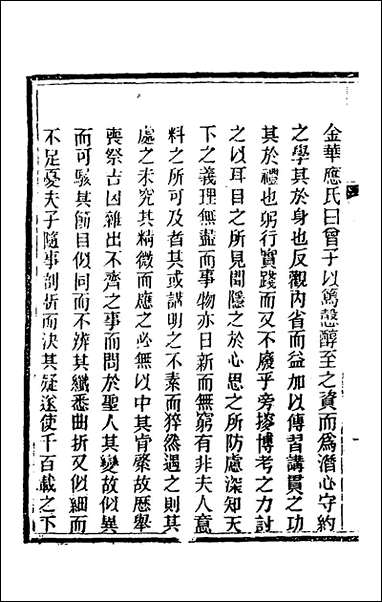 金華應氏曰曾子以篤慤醇至之資而爲潛心守約
之學其於身也反觀內省而益加以傳習講貫之功
其於禮也躬行實踐而又不廢乎旁搜博考之力討
之以耳目之所見聞隱之於心思之所防慮深知天
下之義理無盡而事物亦日新而無窮有非夫人意
料之所可及者其或講明之不素而猝然遇之則其
處之未究其精微而應之必無以中其肯綮故歷舉
喪祭吉凶雜出不齊之事而問於聖人其變故似異
而可駭其節目似同而不辨其纖悉曲折又似細而
不足憂夫子隨事剖析而決其疑遂使千百載之下